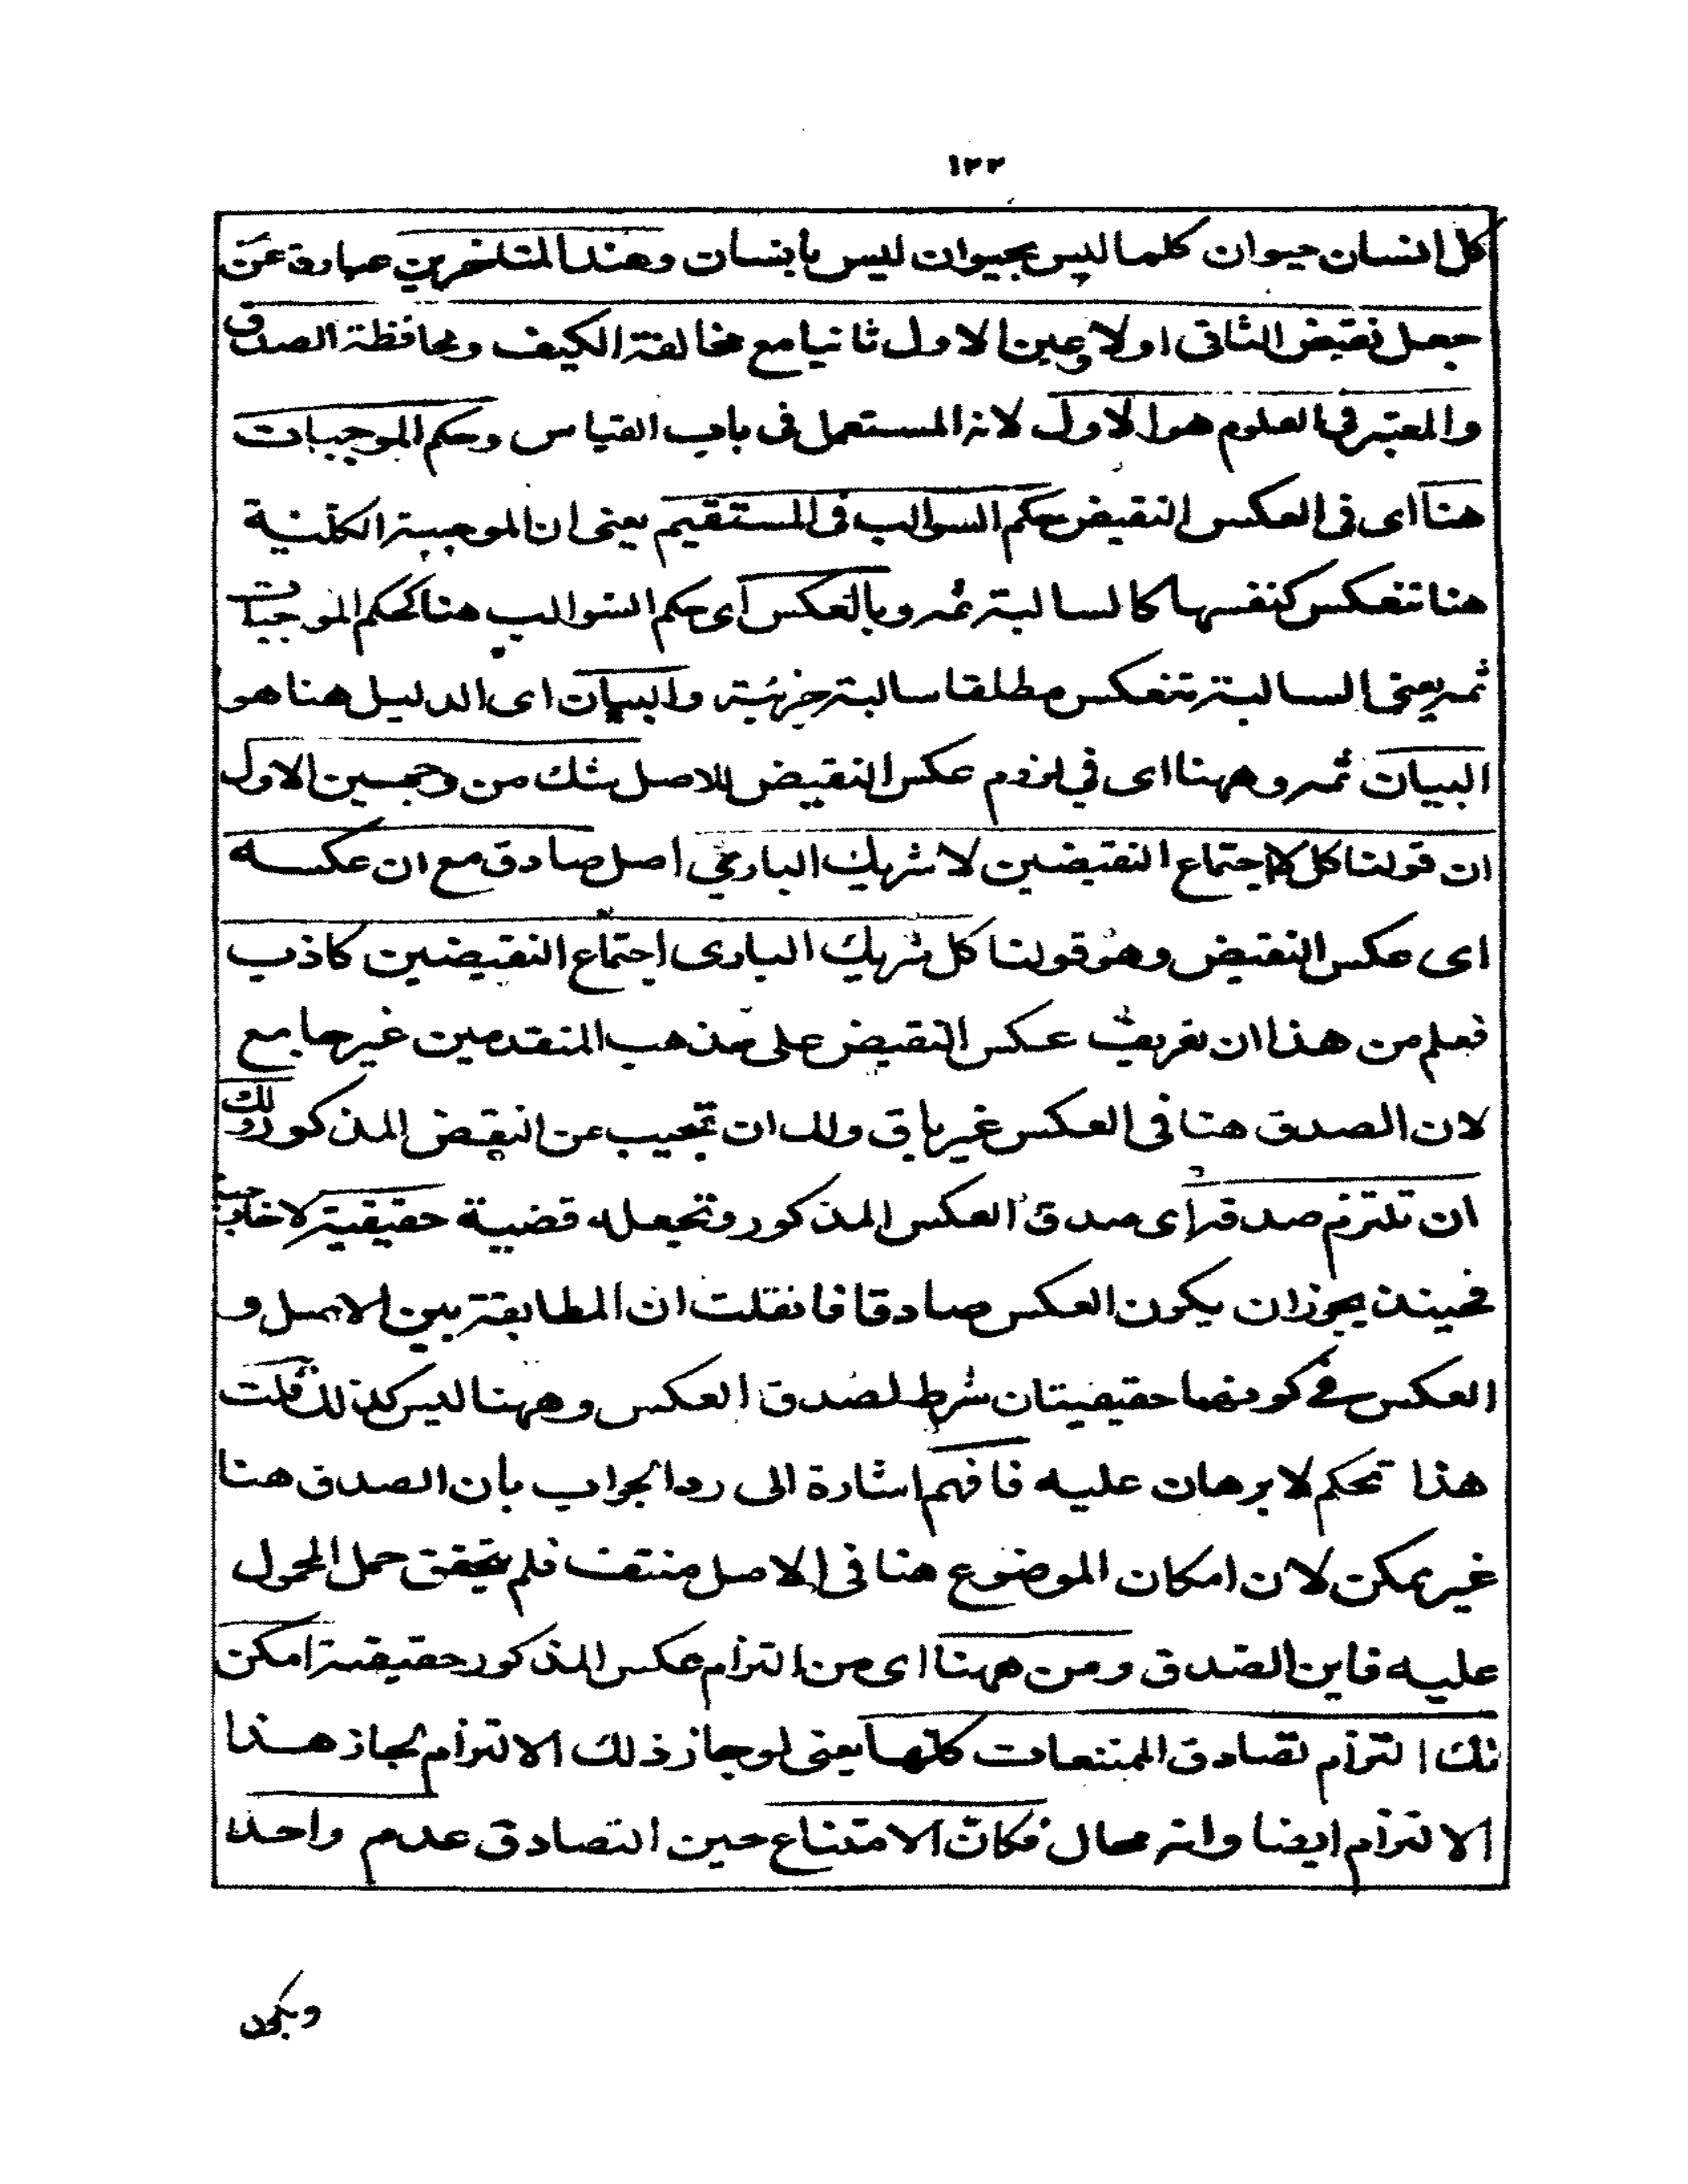 ١٢٢
كل انسان حيوان كلما ليس بحيوان ليس بانسان وعند المتاخرين عبارة عن
جعل نقيض الثانى اولا وعين الاول ثانيا مع مخالفة الكيف ومحافظة الصدق
والمعتبر فى العلوم هو الاول لانه المستعمل فى باب القياس وحكم الموجبات
هنا اى فى العكس النقيض حكم السوالب فى المستقيم يعنى ان الموجبة الكلية
هنا تنعكس كنفسها كالسالبة ثمه وبالعكس اى حكم السوالب هنا كحكم الموجبات
ثمه يعنى السالبة تنعكس مطلقا سالبة جزئية والبيان اى الدليل هنا هو
البيان ثمه وههنا اى فى لزوم عكس النقيض للاصل شك من وجهين الاول
ان قولنا كل لا اجتماع النقيضين لا شريك البارى اصل صادق مع ان عكسه
اى عكس النقيض وهو قولنا كل شريك البارى اجتماع النقيضين كاذب
فعلم من هذا ان تعريف عكس النقيض على مذهب المتقدمين غير جامع
لان الصدق هنا فى العكس غير باق ولك ان تجيب عن النقيض المذكور ولك
ان تلتزم صدقه اى صدق العكس المذكور وتجعله قضية حقيقية لا خارجية
فحينئذ يجوز ان يكون العكس صادقا فانقلت ان المطابقة بين الاصل و
العكس فى كونهما حقيقيتان شرط لصدق العكس وههنا ليس كذلك قلت
هذا تحكم لا برهان عليه فافهم اشارة الى رد الجواب بأن الصدق هنا
غير ممكن لان امكان الموضوع هنا فى الاصل منتف فلم يتحقق حمل المحمول
عليه فاين الصدق ومن ههنا اى من التزام عكس المذكور حقيقية امكن
لك التزام تصادق الممتنعات كلها يعنى لو جاز ذلك الالتزام لجاز هذا
الالتزام ايضا وانه محال فكان الامتناع حين التصادق عدم واحدا
ويكون